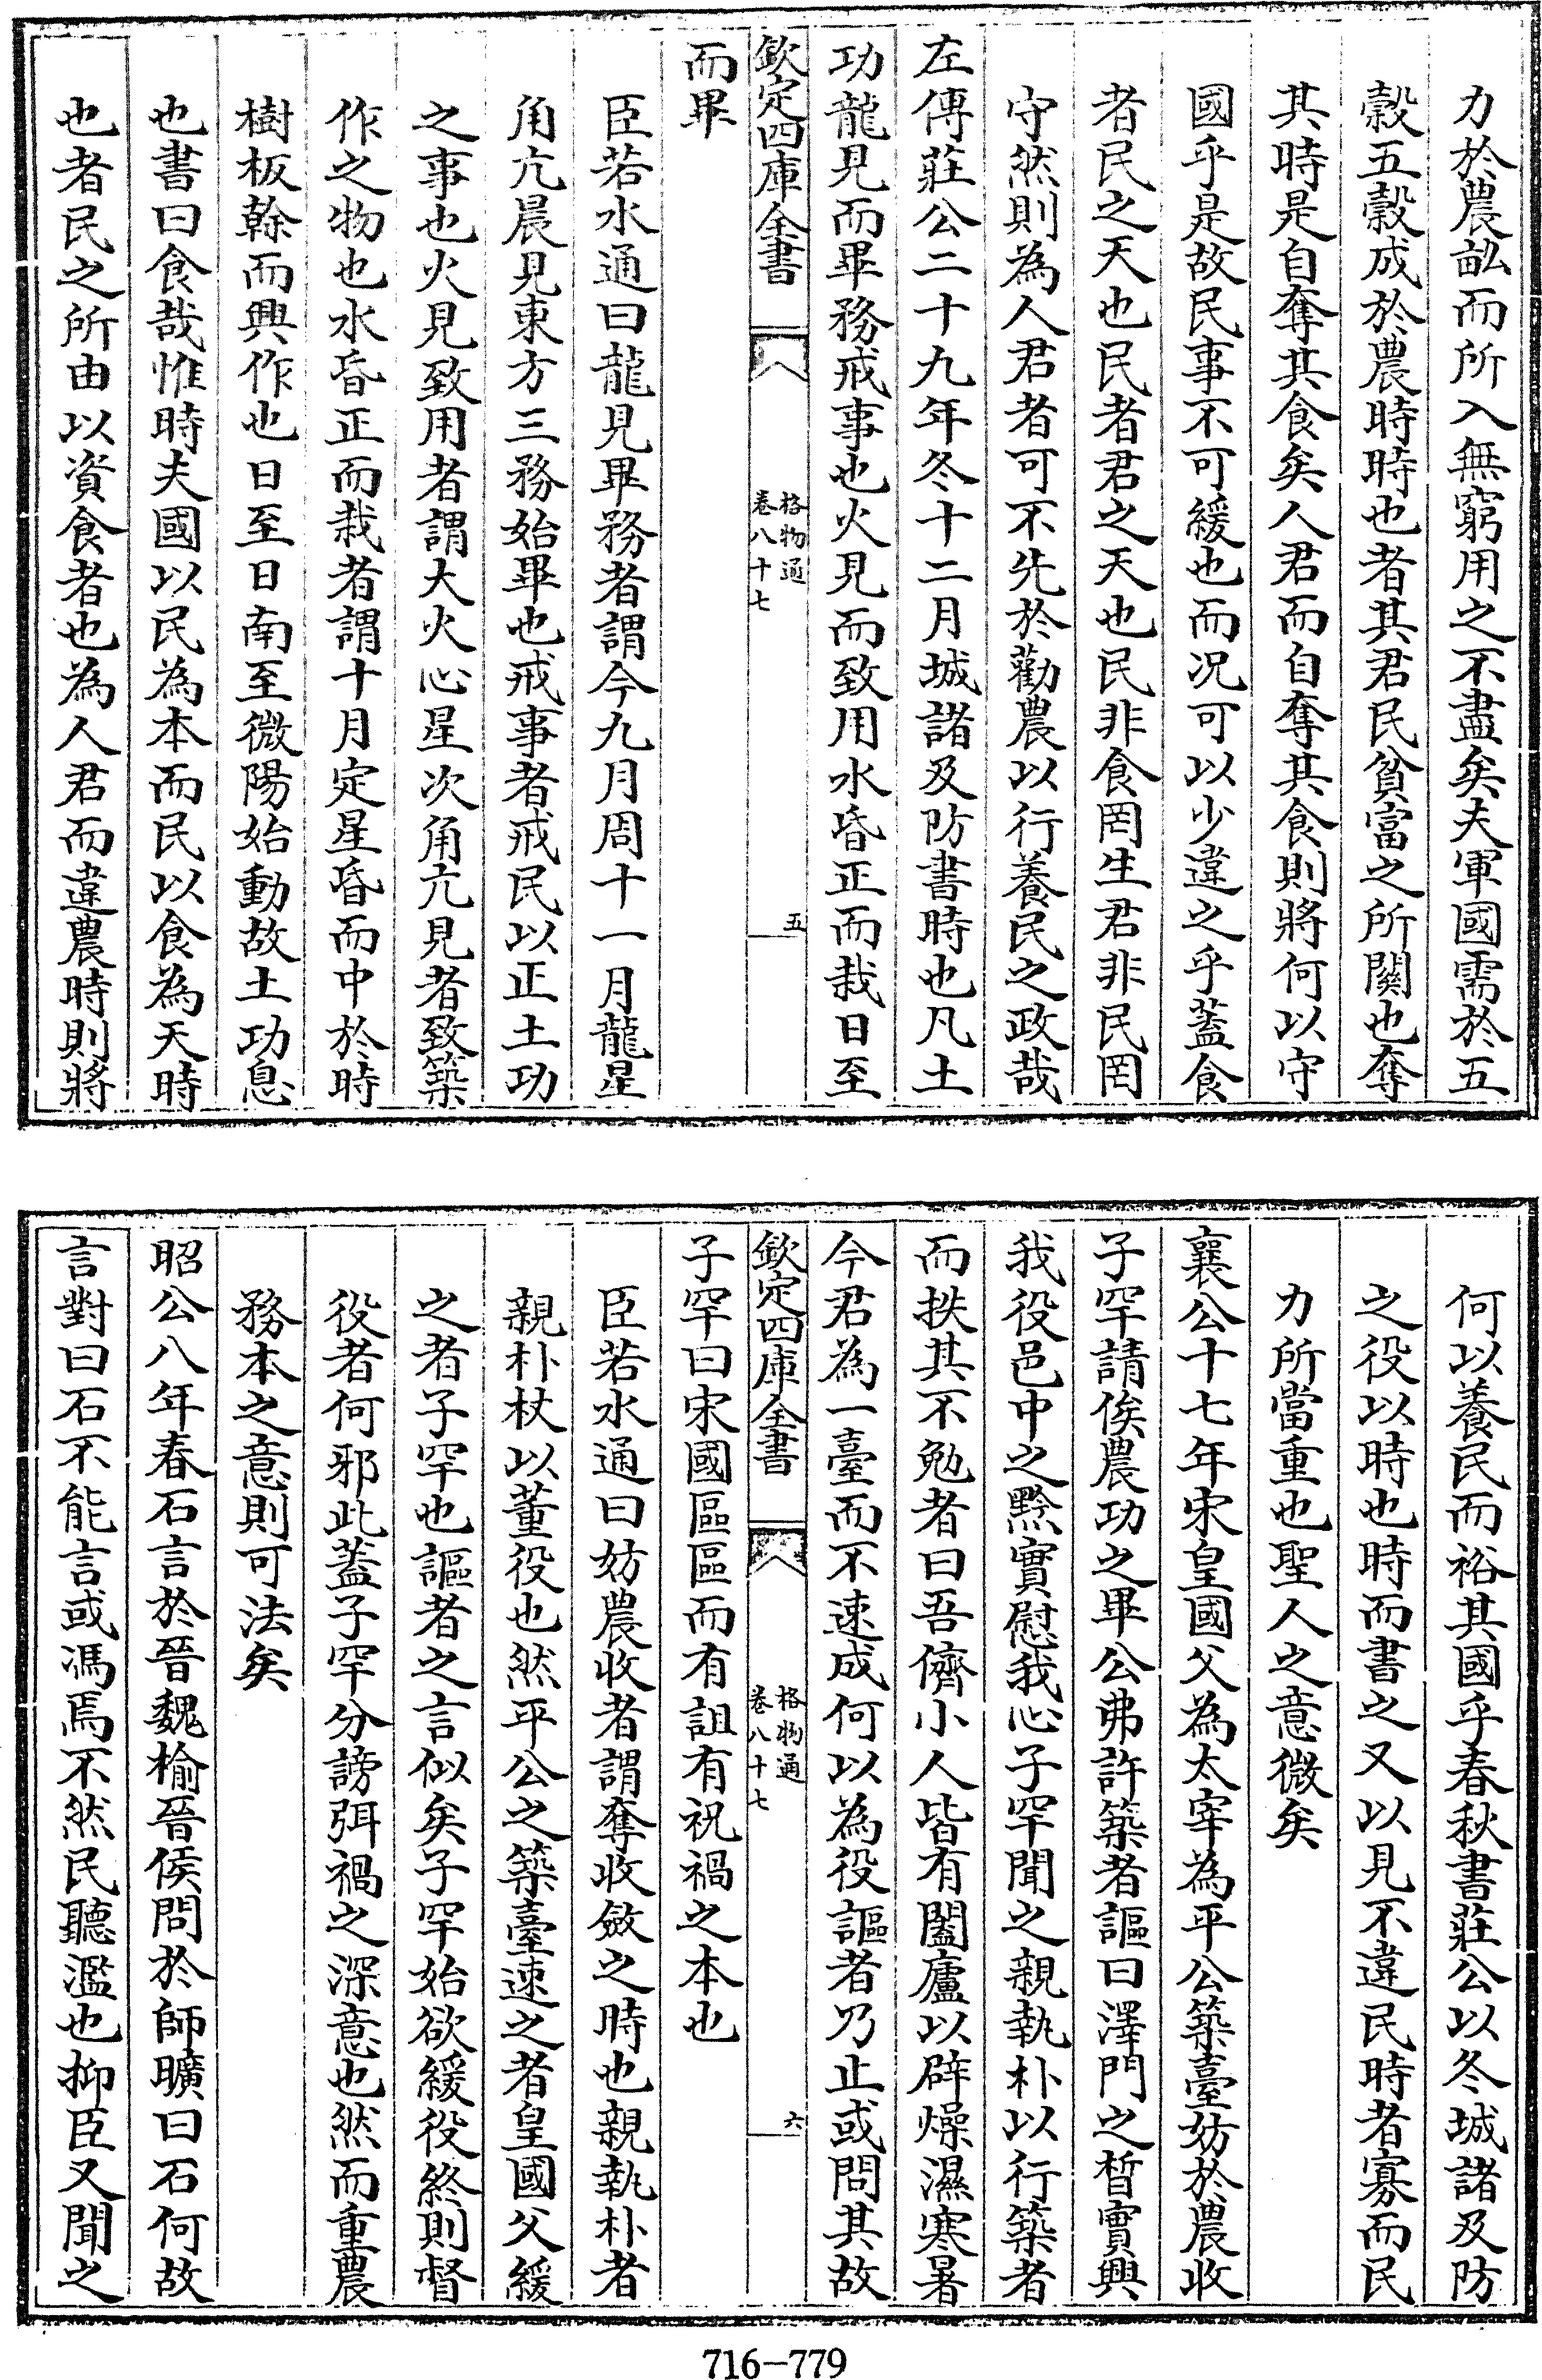 力於農畝而所入無窮用之不盡矣夫軍國需於五
穀五穀成於農時時也者其君民貧富之所關也奪
其時是自奪其食矣人君而自奪其食則將何以守
國乎是故民事不可緩也而况可以少違之乎蓋食
者民之天也民者君之天也民非食罔生君非民罔
守然則為人君者可不先於勸農以行養民之政哉
左傳莊公二十九年冬十二月城諸及防書時也凡土
功龍見而畢務戒事也火見而致用水昏正而栽日至
欽定四庫全書
格物通
卷八十七
五
而畢
臣若水通曰龍見畢務者謂今九月周十一月龍星
角亢晨見東方三務始畢也戒事者戒民以正土功
之事也火見致用者謂大火心星次角亢見者致築
作之物也水昏正而栽者謂十月定星昏而中於時
樹板榦而興作也日至日南至微陽始動故土功息
也書曰食哉惟時夫國以民為本而民以食為天時
也者民之所由以資食者也為人君而違農時則將
何以養民而裕其國乎春秋書莊公以冬城諸及防
之役以時也時而書之又以見不違民時者寡而民
力所當重也聖人之意微矣
襄公十七年宋皇國父為太宰為平公築臺妨於農收
子罕請俟農功之畢公弗許築者謳曰澤門之晳實興
我役邑中之黔實慰我心子罕聞之親執朴以行築者
而抶其不勉者曰吾儕小人皆有闔廬以辟燥濕寒暑
今君為一臺而不速成何以為役謳者乃止或問其故
欽定四庫全書
格物通
卷八十七
六
子罕曰宋國區區而有詛有祝禍之本也
臣若水通曰妨農收者謂奪收斂之時也親執朴者
親朴杖以董役也然平公之築臺速之者皇國父緩
之者子罕也謳者之言似矣子罕始欲緩役終則督
役者何邪此蓋子罕分謗弭禍之深意也然而重農
務本之意則可法矣
昭公八年春石言於晉魏榆晉侯問於師曠曰石何故
言對曰石不能言或馮焉不然民聽濫也抑臣又聞之
716-779